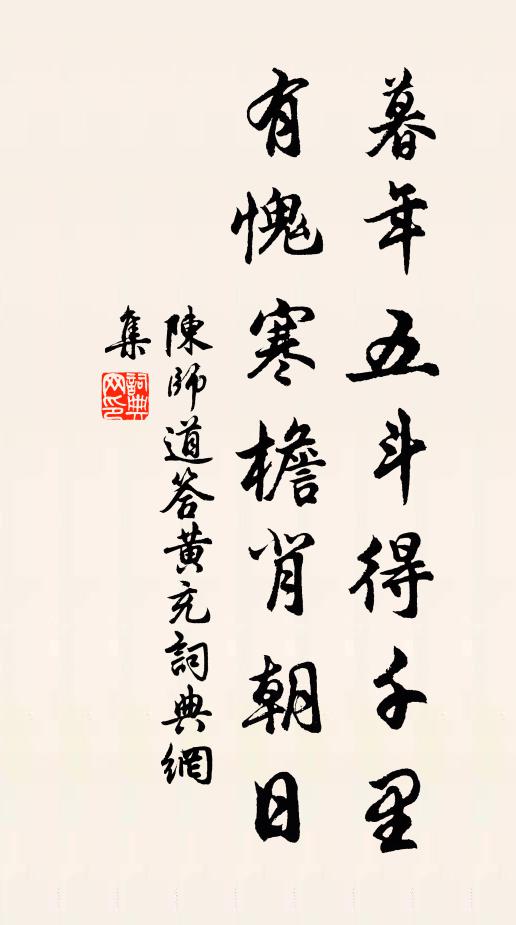 暮年五斗得千里
有愧寒檐背朝日
陳師道答黃充詞典網
集
詞典
网印